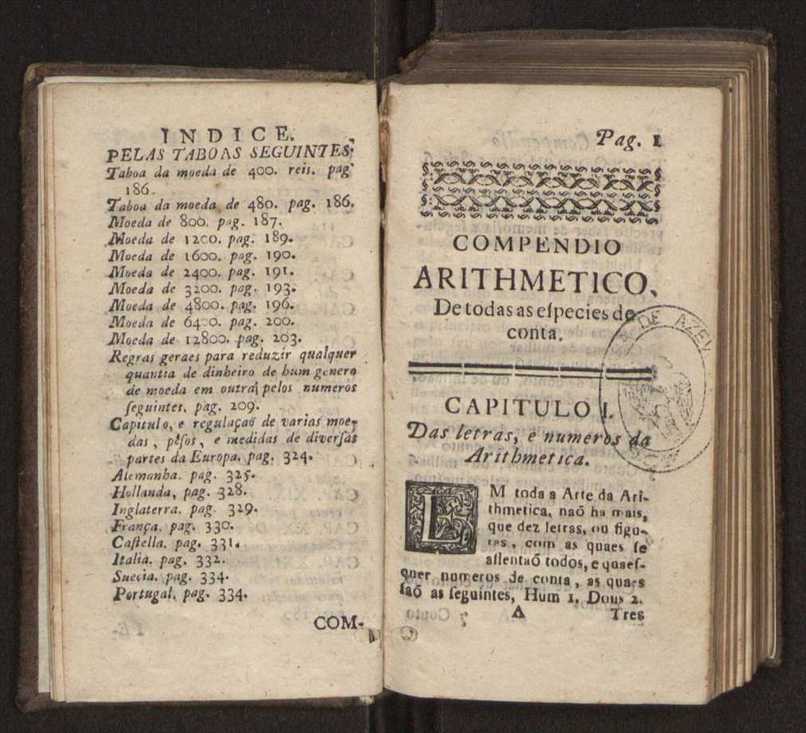 INDICE.
PELAS TABOAS SEGUINTES.
Taboa da moeda de 400. reis. pag.
186.
Taboa da moeda de 480. pag. 186.
Moeda de 800. pag. 187.
Moeda de 1200. pag. 189.
Moeda de 1600. pag. 190.
Moeda de 2400. pag. 191.
Moeda de 3200. pag. 193.
Moeda de 4800. pag. 196.
Moeda de 6400. pag. 200.
Moeda de 12800. pag. 203.
Regras geraes para reduzir qualquer
quantia de dinheiro de hum genero
de moeda em outra, pelos numeros
ſeguintes, pag. 209.
Capitulo, e regulaçaõ de varias moe-
das, peſos, e medidas de diverſas
partes da Europa. pag. 324.
Alemanha. pag. 325.
Hollanda, pag. 328.
Inglaterra. pag. 329.
França. pag. 330.
Caſtella. pag. 331.
Italia. pag. 332.
Suecia. pag. 334.
Portugal. pag. 334.
COM-
Pag. 1
COMPENDIO
ARITHMETICO,
De todas as eſpecies de
conta.
DE AZEV
CAPITULO I.
Das letras, e numeros da
Arithmetica.
EM toda a Arte da Ari-
thmetica, naõ ha mais,
que dez letras, ou figu-
ras, com as quaes ſe
aſſentaõ todos, e quaeſ-
quer numeros de conta, as quaes
ſaõ as ſeguintes, Hum 1. Dous 2.
A Tres